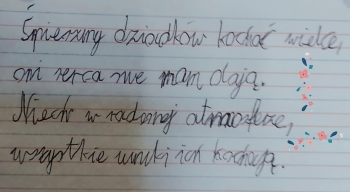 Śpieszmy dziadków kochać wielce,
oni serca swe nam dają.
Niech w radosnej atmosferze,
wszystkie wnuki ich kochają.